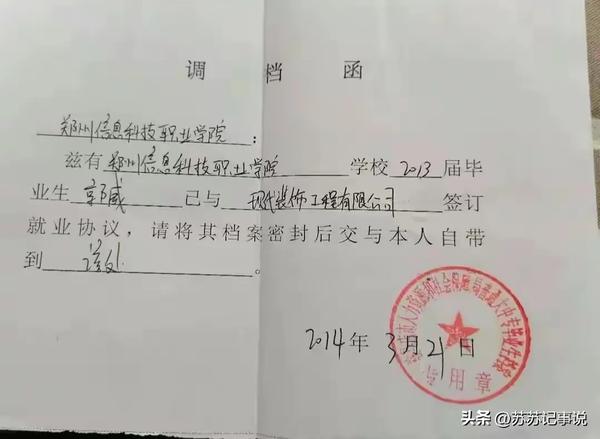 调档函
郑州信息科技职业学院：
兹有郑州信息科技职业学院学校2013届毕
业生郭威已与现代装饰工程有限公司签订
就业协议，请将其档案密封后交与本人自带
到该处。
2014年3月21日
专用章
头条 @苏苏记事说